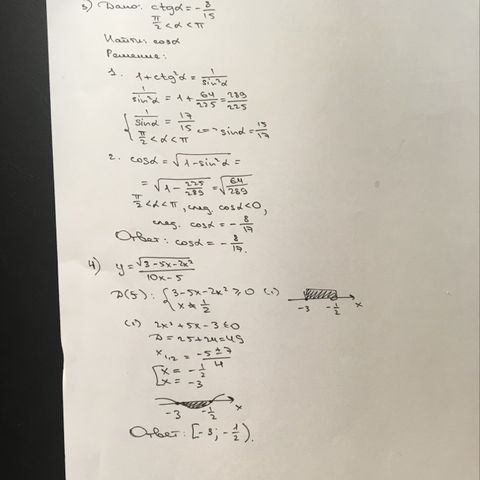 3) Дано: ctgα = -8/15
π/2 < α < π
Найти: cosα
Решение:
1. 1 + ctg²α = 1/sin²α
1/sin²α = 1 + 64/225 = 289/225
{ 1/sinα = 17/15
π/2 < α < π <=> sinα = 15/17
2. cosα = √(1 - sin²α) =
= √(1 - 225/289) = √(64/289)
π/2 < α < π, след. cosα < 0,
след. cosα = -8/17
Ответ: cosα = -8/17.
4) y = √(3 - 5x - 2x²)/(10x - 5)
D(5): { 3 - 5x - 2x² ≥ 0 (1)
x ≠ 1/2
-3 -1/2 x
(1) 2x² + 5x - 3 ≤ 0
D = 25 + 24 = 49
x₁,₂ = (-5 ± 7)/4
[ x = -1/2
x = -3
-3 -1/2 x
Ответ: [-3; -1/2).